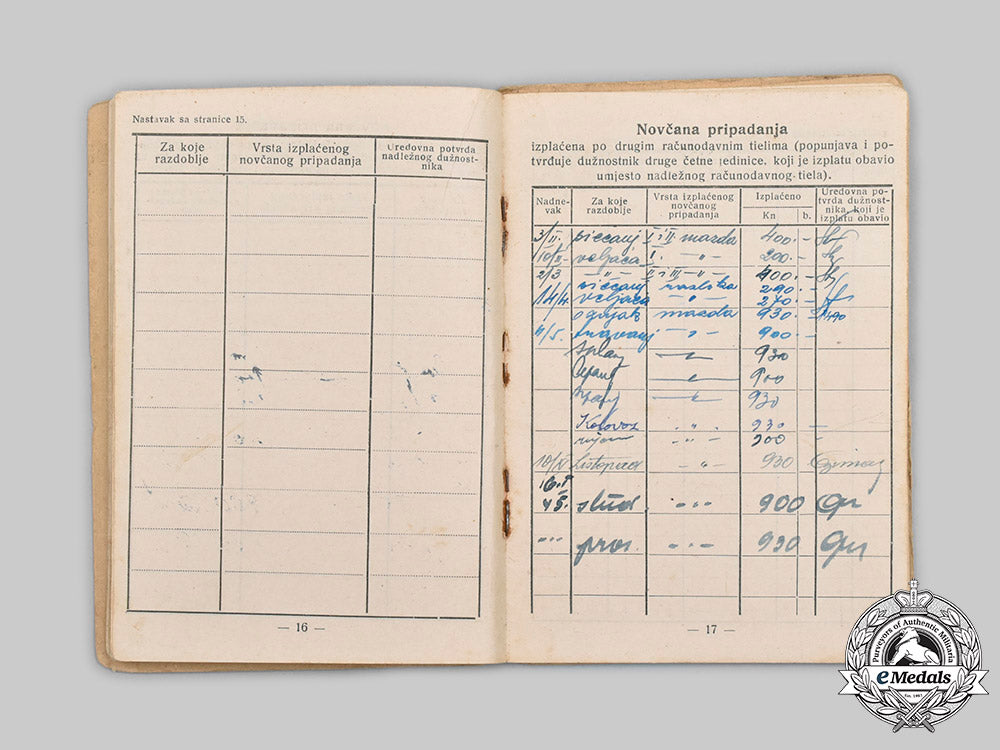 Nastavak sa stranice 15.
Za koje razdoblje
Vrsta izplaćenog novčanog pripadanja
Uredovna potvrda nadležnog dužnostnika
— 16 —
Novčana pripadanja
izplaćena po drugim računodavnim tielima (popunjava i po-
tvrđuje dužnostnik druge četne jedinice, koji je izplatu obavio
umjesto nadležnog računodavnog tiela).
Nadne-
vak
Za koje
razdoblje
Vrsta izplaćenog
novčanog
pripadanja
Izplaćeno
Kn b.
Uredovna po-
tvrda dužnost-
nika, koji je
izplatu obavio
3/II. siečanj I i II mazda 400.-
10/II- veljača I. -"- 200.-
2/3 -"- II i III -"- 400.-
siečanj razlika 290.-
14/4. veljača -"- 270.-
ožujak mazda 930.-
4/5. travanj -"- 900.-
930
900
930
Kolovoz " 930 -
rujan -"- 900 -
10/XI Listopad -"- 930
16.I
45. stud "" 900
"" pros. "" 930
— 17 —
Purveyors of Authentic Militaria
eMedals